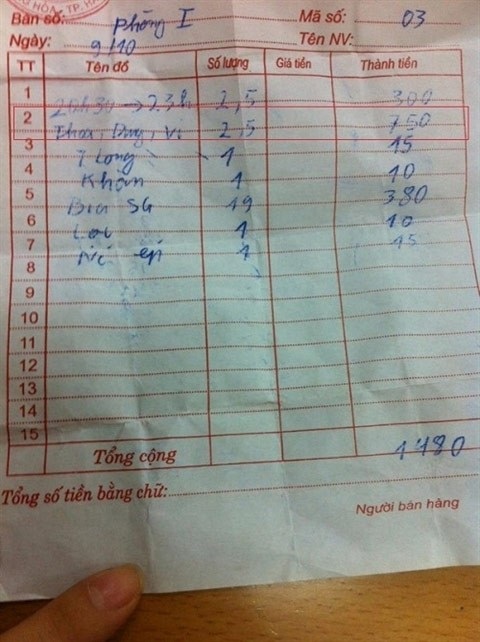 Bàn số: Phòng I Mã số: 03
Ngày: 9/10 Tên NV:
TT Tên đồ Số lượng Giá tiền Thành tiền
1 20h30 → 23h 2,5 300
2 Thoa, Duy, Vi 2,5 750
3 T Long 1 15
4 Khăn 1 10
5 Bia SG 19 380
6 1 10
7 1 15
8
9
10
11
12
13
14
15
Tổng cộng 1480
Tổng số tiền bằng chữ:
Người bán hàng